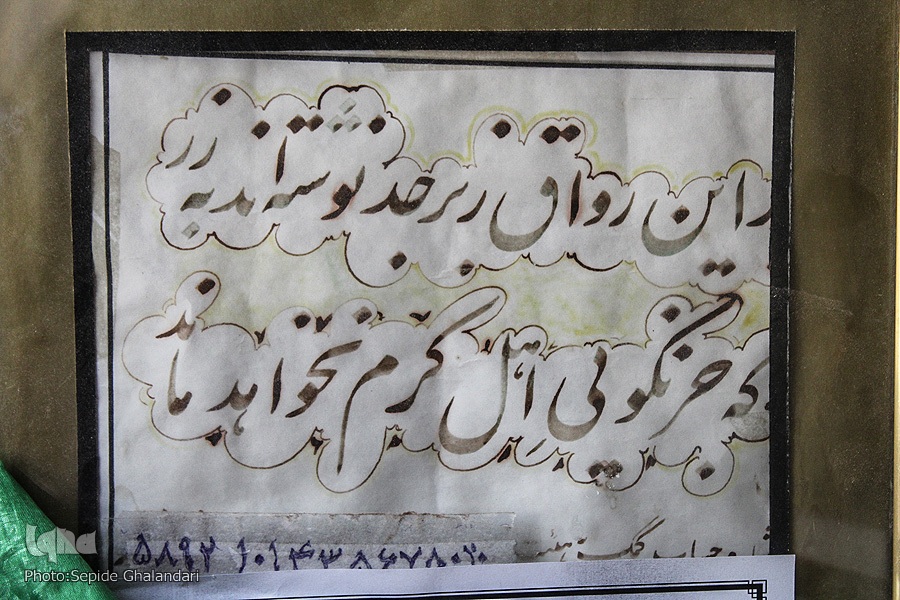 ر این رواق زبرجد نوشته اند به زر
که جز نکویی اهل کرم نخواهد ماند
۵۸۹۲ ۱۰۱۴۳ ۸۶۷۸۰۲۰
iqna
Photo:Sepide Ghalandari